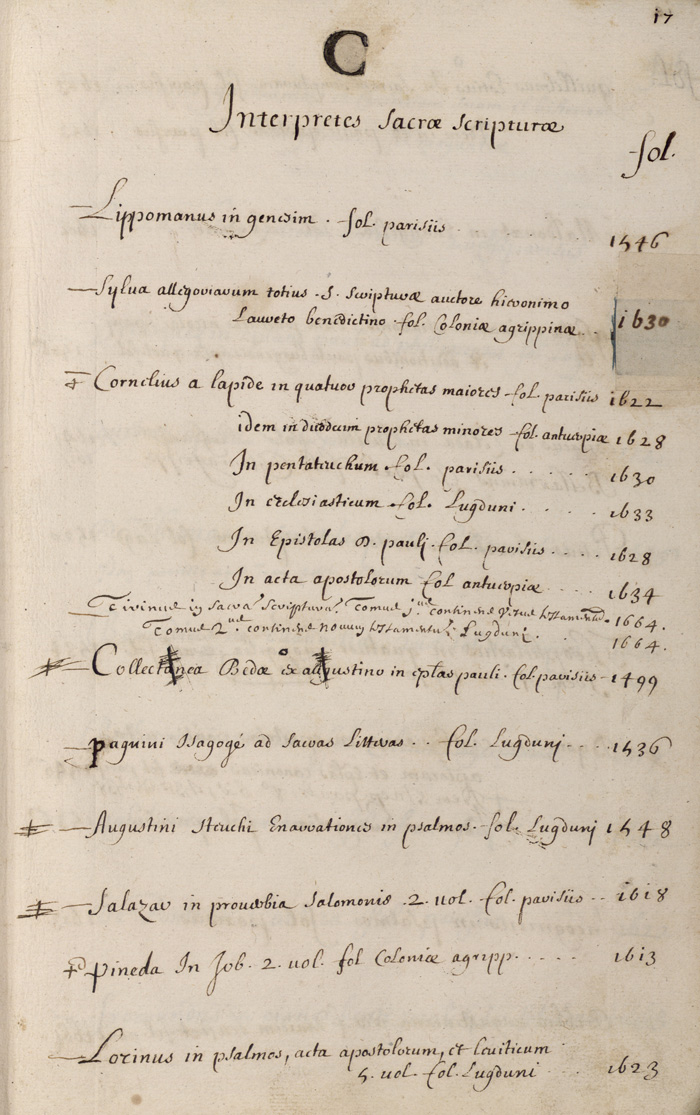 17
C
Interpretes Sacræ scripturæ
fol.
Lippomanus in genesim . fol. parisiis 1546
Sylva allegoriarum totius .S. scripturæ auctore hieronimo
Laureto benedictino fol. Coloniæ agrippinæ.. 1630
Cornelius a lapide in quatuor prophetas maiores fol. parisiis 1622
idem in duodecim prophetas minores fol. antuerpiæ 1628
In pentateuchum . fol. parisiis . . . . . 1630
In ecclesiasticum . fol. Lugduni . . . . . 1633
In Epistolas D. pauli . fol. parisiis . . . . 1628
In acta apostolorum fol antuerpiæ . . . . 1634
Tirinus in sacra Scriptura Tomus 1us continens Vetus testamentum 1664.
Tomus 2us continens novum testamentum Lugduni. 1664.
Collectanea Bedæ ex augustino in eplas pauli . fol. parisiis - 1499
pagnini Isagogé ad sacras Litteras . . fol. Lugduni . . . 1536
Augustini Steuchi Enarrationes in psalmos . fol. Lugduni 1548
Salazar in proverbia Salomonis .2. vol. fol. parisiis . . 1618
pineda In Job . 2. vol. fol Coloniæ agripp. . . . . 1613
Lorinus in psalmos, acta apostolorum, et leviticum
5. vol. fol. Lugduni . . . 1623